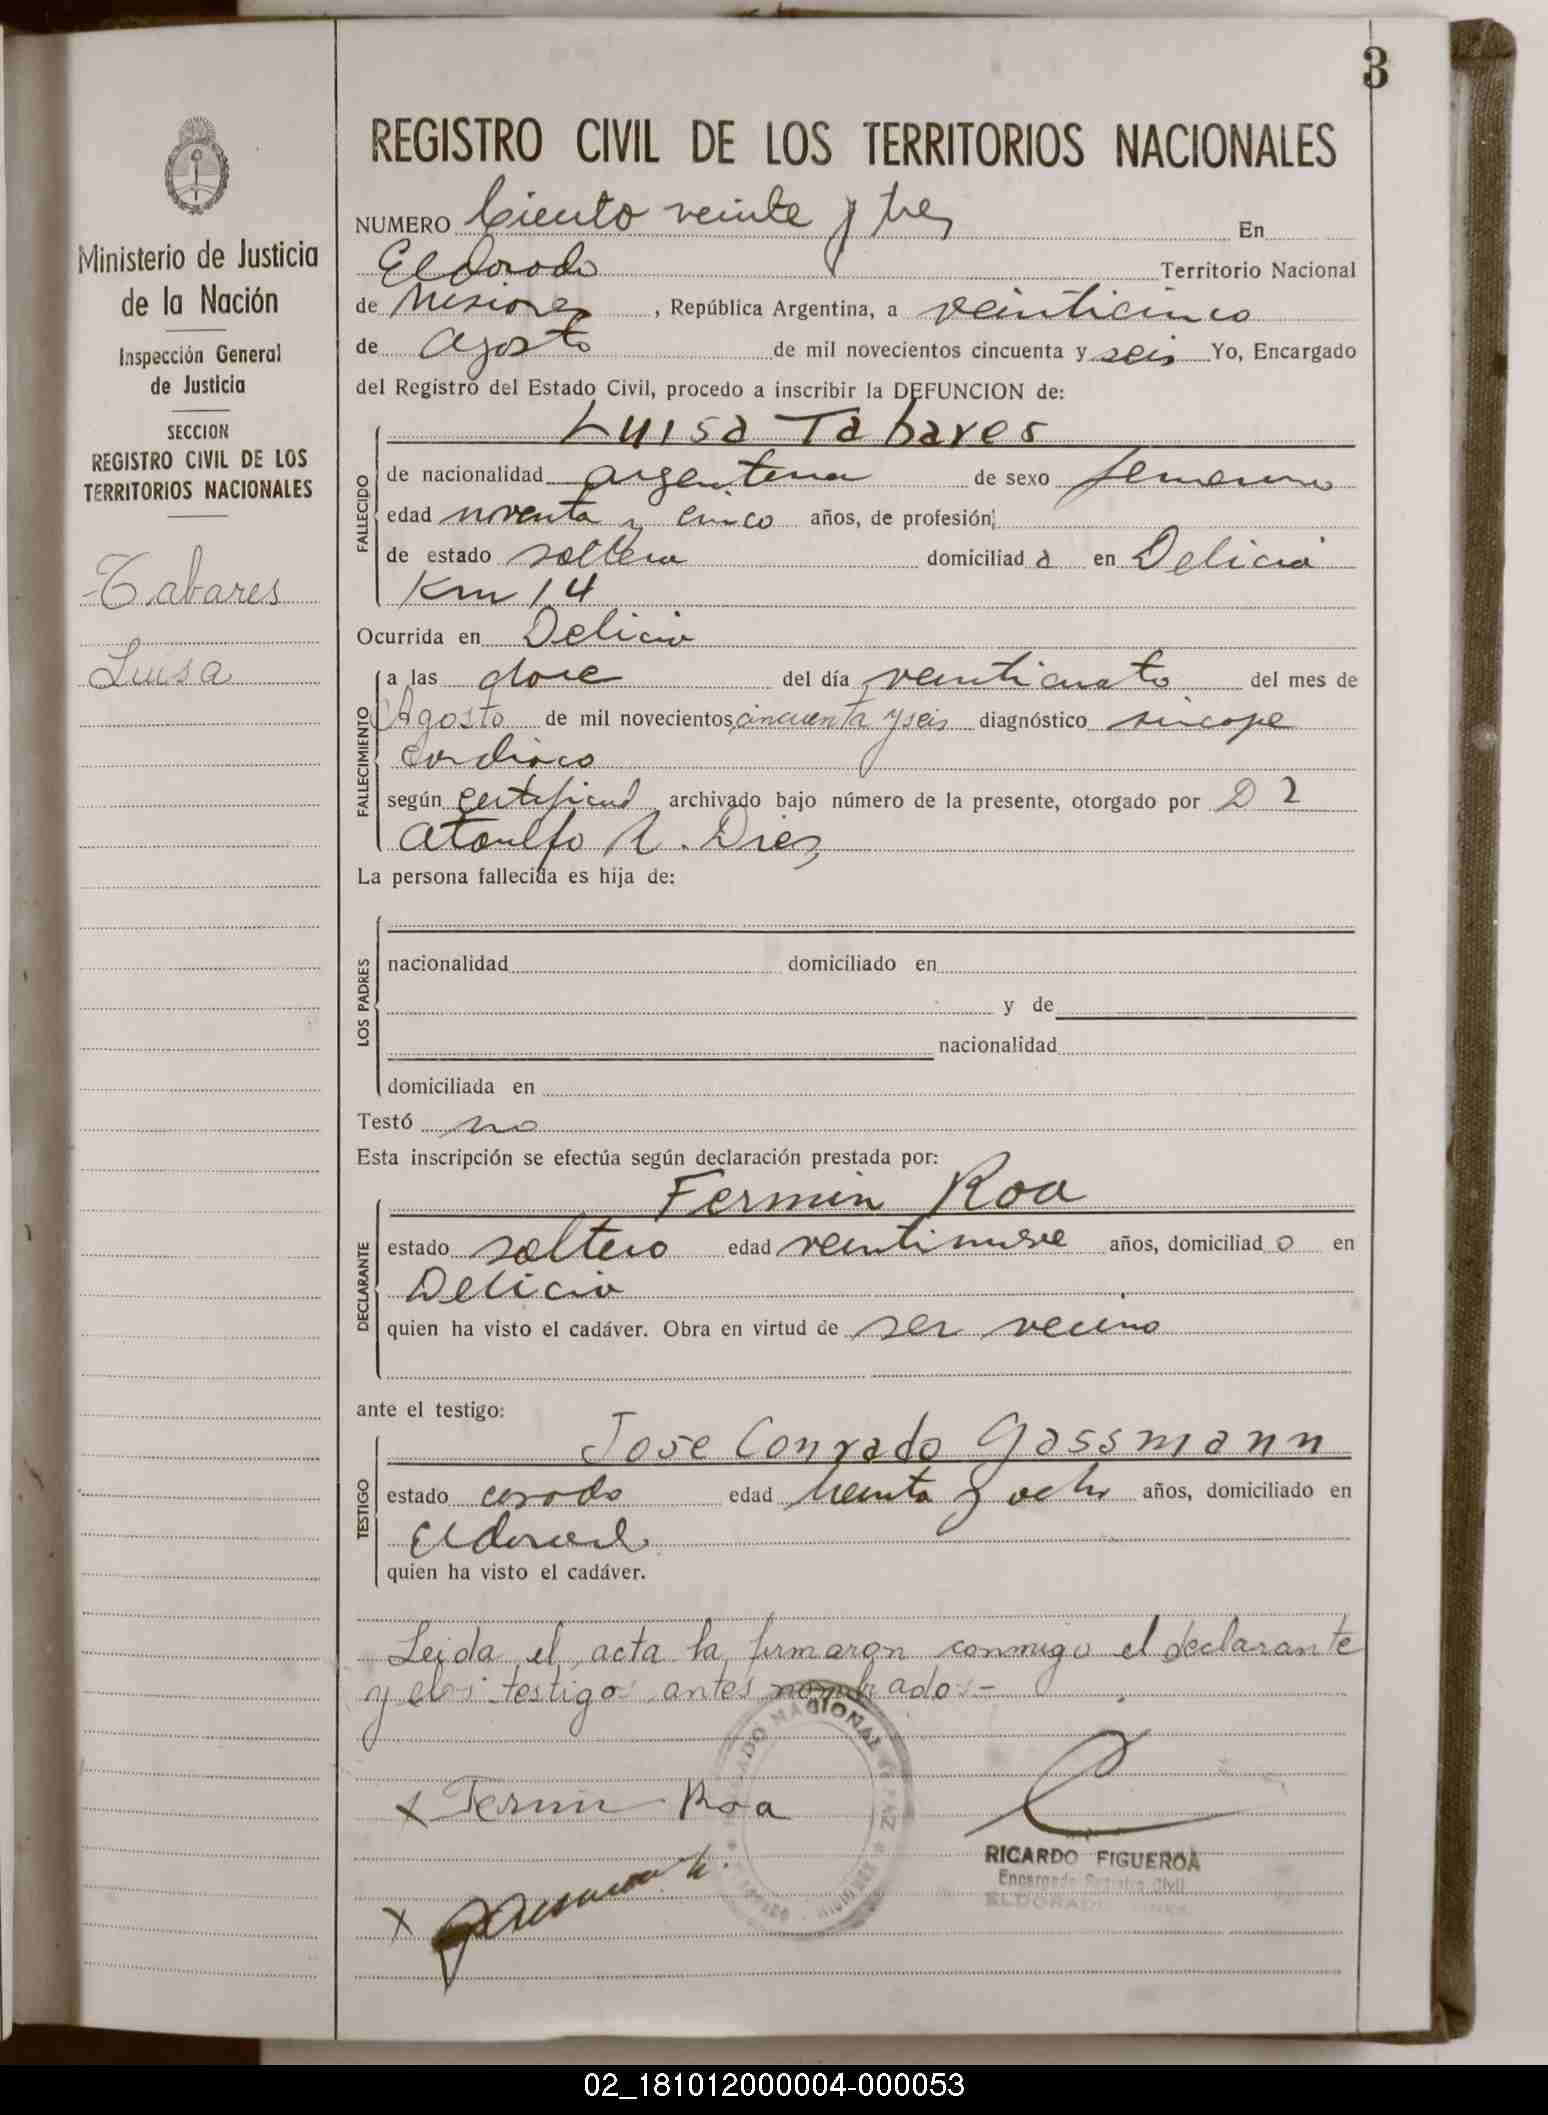 3
REGISTRO CIVIL DE LOS TERRITORIOS NACIONALES
Ministerio de Justicia
de la Nación
Inspección General
de Justicia
SECCION
REGISTRO CIVIL DE LOS
TERRITORIOS NACIONALES
Tabares
Luisa
NUMERO Ciento veinte y tres En
Eldorado Territorio Nacional
de Misiones, República Argentina, a veinticinco
de Agosto de mil novecientos cincuenta y seis Yo, Encargado
del Registro del Estado Civil, procedo a inscribir la DEFUNCION de:
FALLECIDO
Luisa Tabares
de nacionalidad argentina de sexo femenino
edad noventa y cinco años, de profesión
de estado soltera domiciliada en Delicia
Km 14
Ocurrida en Delicia
FALLECIMIENTO
a las doce del día veinticuatro del mes de
Agosto de mil novecientos cincuenta y seis diagnóstico sincope
cardiaco
según certificad archivado bajo número de la presente, otorgado por D
Ataulfo A. Dies
La persona fallecida es hija de:
LOS PADRES
nacionalidad domiciliado en
y de
nacionalidad
domiciliada en
Testó no
Esta inscripción se efectúa según declaración prestada por:
DECLARANTE
Fermin Roa
estado soltero edad veintinueve años, domiciliado en
Delicia
quien ha visto el cadáver. Obra en virtud de ser vecino
ante el testigo:
TESTIGO
Jose Conrado Gassmann
estado casado edad treinta y ocho años, domiciliado en
Eldorado
quien ha visto el cadáver.
Leida el acta la firmaron conmigo el declarante
y el testigo antes nombrados.-
x Fermin Roa
RICARDO FIGUEROA
Encargado Registro Civil
ELDORADO
x
02_181012000004-000053